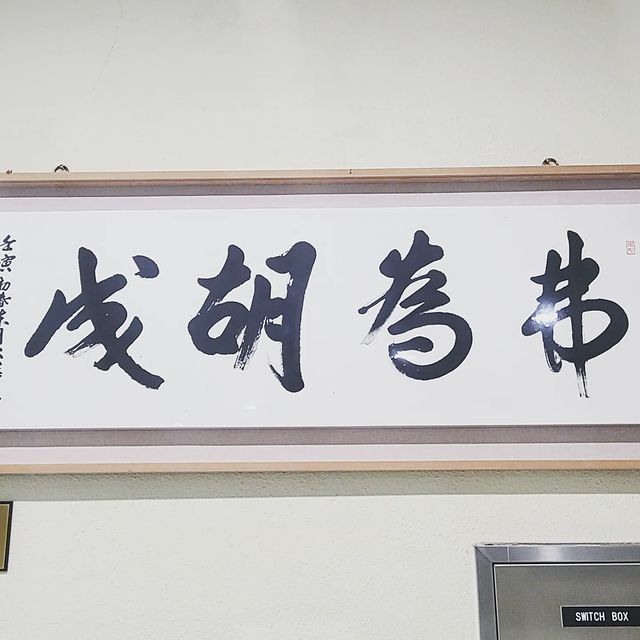 弗為胡成
壬寅初春
SWITCH BOX